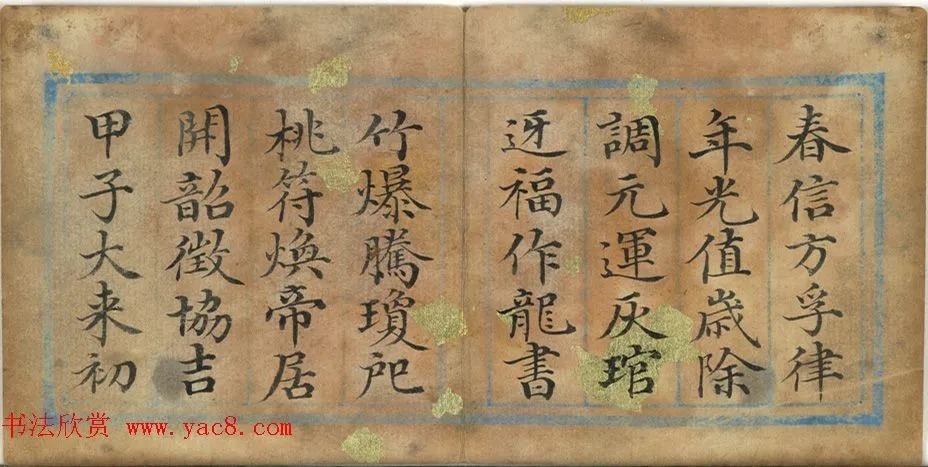 春信方孚律
年光值歲除
調元運灰琯
迓福作龍書
竹爆騰瓊戺
桃符煥帝居
開韶徴協吉
甲子大来初
书法欣赏 www.yac8.com